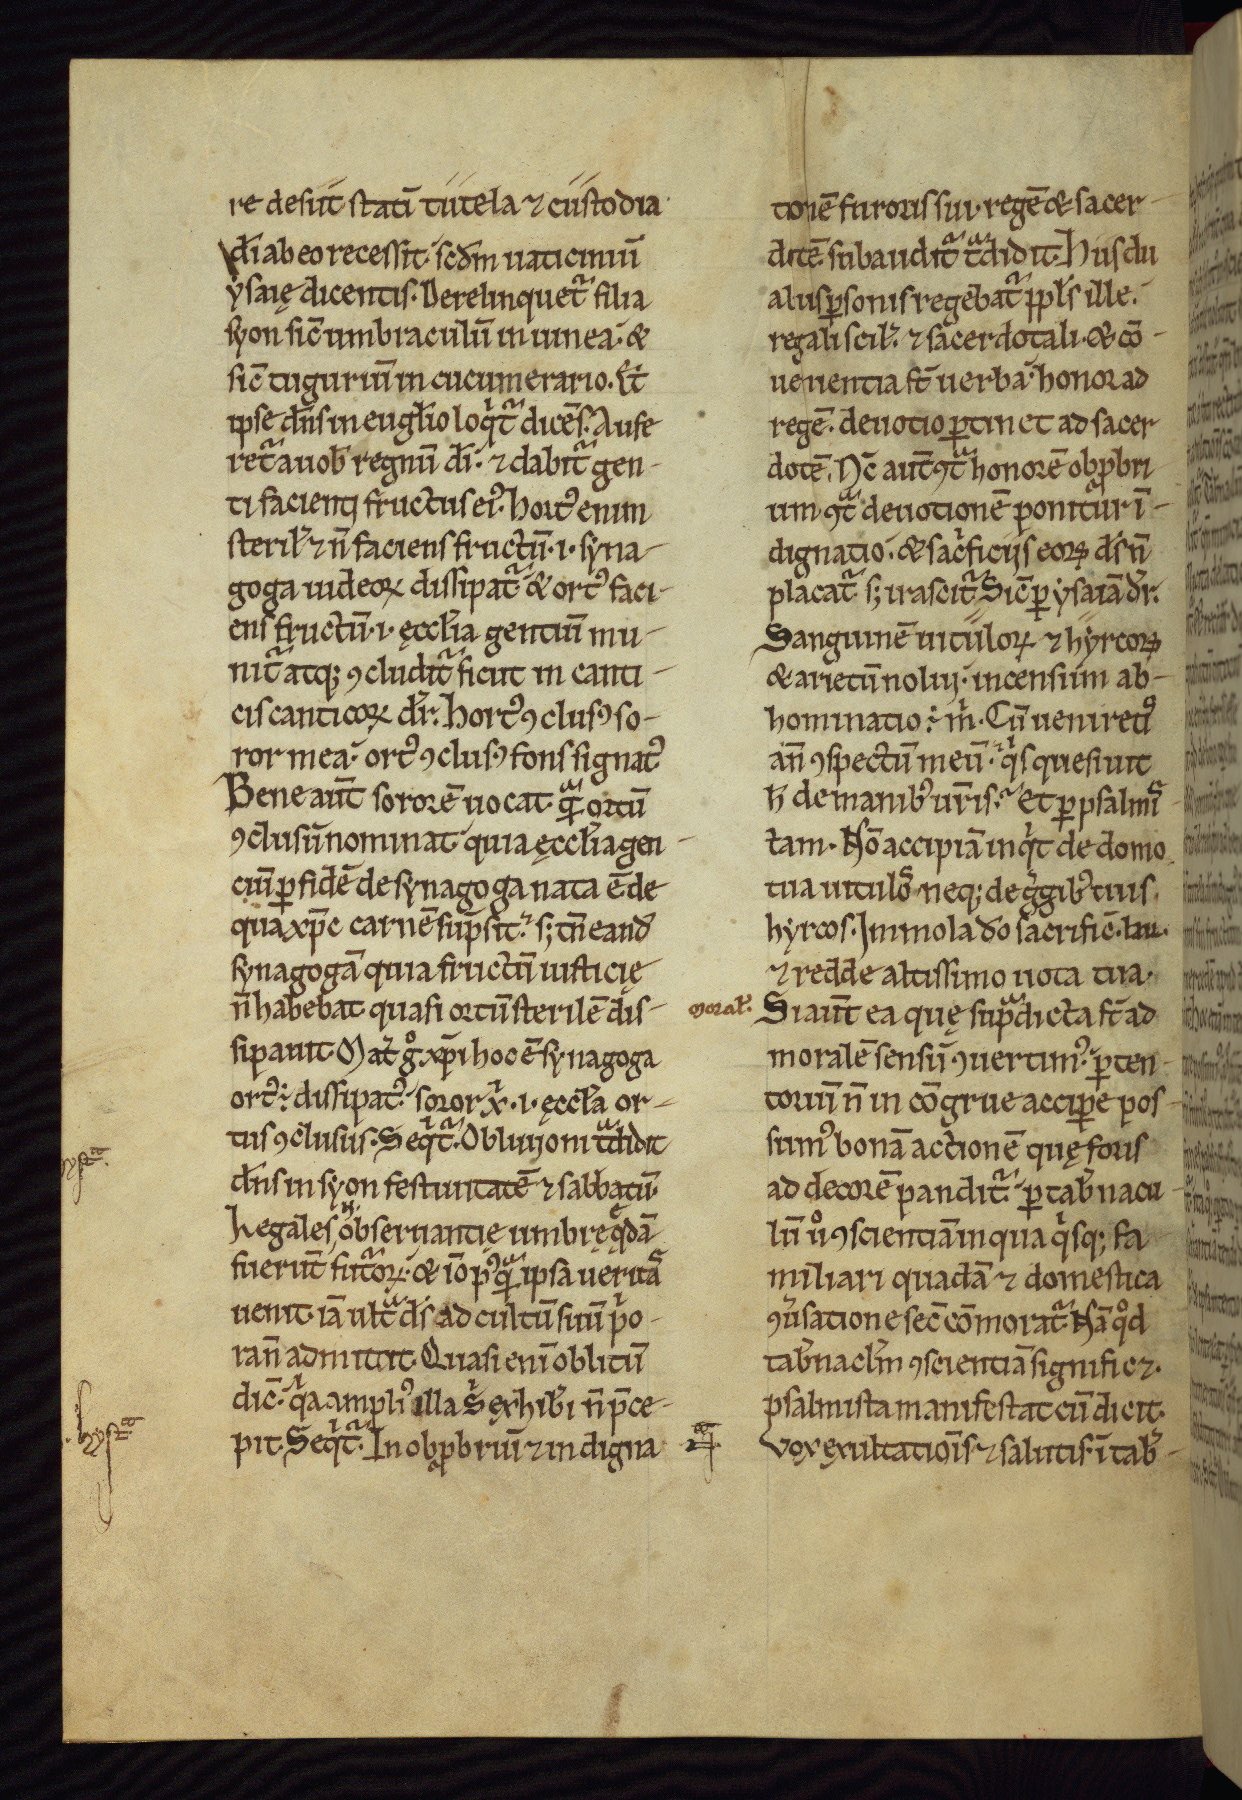 re desūt statī tutela ⁊ custodia
dī ab eo recessit. scd̄m uaticiniū
ysaię dicentis. Derelinquet᷑ filia
syon sic̄ umbraculū in uinea. &
sic̄ tuguriū in cucumerario. Et
ipse dn̄s in euglīo loqͥt᷑ dicēs. Aufe
ret᷑ a uob̄ regnū dī. ⁊ dabit᷑ gen-
ti facienti fructus eiꝰ. hortꝰ enim
steril᷑ ⁊ n̄ faciens fructū .i. syna-
goga iudeoꝝ dissipat᷑ & ortꝰ faci-
ens fructū .i. ęccl̄ia gentiū mu-
nit᷑ atqꝫ ꝯcludit᷑ sicut in canti-
cis canticoꝝ dr̄. hortꝰ ꝯclusꝰ so-
ror mea. ortꝰ ꝯclusꝰ fons signatꝰ
Bene aūt sororē uocat q̄m ortū
ꝯclusū nominat quia ęccl̄ia gen
ciū ꝑ fidē de synagoga nata ē de
qua xp̄c carnē sūpsit. sꝫ tn̄ eand̄
synagogā quia fructū iusticię
n̄ habebat quasi ortū sterilē dis-
sipauit. Mat̄ gͦ xp̄i hoc ē synagoga
ortꝰ ÷ dissipatꝰ. soror xͥ .i. ęccl̄a or-
tus ꝯclusus. Seqͥt᷑. Obliuioni tᷓdidit
dn̄s in syon festiuitatē ⁊ sabbatū.
Legales obseruantię umbrę qͣdā
fuerūt futͮoꝝ. & iō pꝰqͣm ipsa ueritaˢ
uenit. iā ultͣ ds̄ ad cultū suū pͥo-
ran̄ admittit. Quasi enī oblitū
dic̄. qͥa ampliꝰ illa sͥ exhib̄i n̄ p̄ce-
pit. Seqͥt᷑. In obꝓbriū ⁊ in digna
tionē furoris sui. regē & sacer-
dotē. subaudit᷑ tᷓdidit. Hiis du
abus ꝑsonis regebat᷑ pp̄ls ille.
regali scil᷑. ⁊ sacerdotali. & cō-
uenientia st̄ uerba. honor ad
regē. deuotio ꝑtinet ad sacer
dotē. Nc̄ aūt ꝯtͣ honorē obꝓbri
um ꝯtͣ deuotionē ponitur ī-
dignatio. & sacͥficiis eoꝝ ds̄ n̄
placat᷑. sꝫ irascit᷑. Sic̄ ꝑ ysaiā dr̄.
Sanguinē uituloꝝ ⁊ hyrcoꝝ
& arietū nolui. incensum ab-
hominatio ÷ mͥ. Cū ueniretꝭ
an̄ ꝯspectū meū. qͥs quesiuit
h̄ de manibꝰ ur̄is. Et ꝑ psalmiˢ
tam. Nō accipiā inqͥt de domo
tua uitulos neqꝫ de gͤgibꝰ tuis
hyrcos. Immola dō sacrific̄. lau.
⁊ redde altissimo uota tua.
Si aūt ea quę supͣdicta st̄ ad
moral᷑.
moralē sensū ꝯuertimꝰ. ꝑ ten
toriū n̄ in cōgrue accipe pos
sumꝰ bonā actionē quę foris
ad decorē pandit᷑. ꝑ tab̄nacu
lū uͦ ꝯscientiā in qua qͥsqꝫ fa-
miliari quadā ⁊ domestica
ꝯuͥsatione sec̄ cōmorat᷑. Nā qͦd
tab̄nacl̄m ꝯscientiā significꝫ.
psalmista manifestat cū dicit.
Vox exultationis ⁊ salutis ī tab̄-
hystᵃ.
.hystᵃ